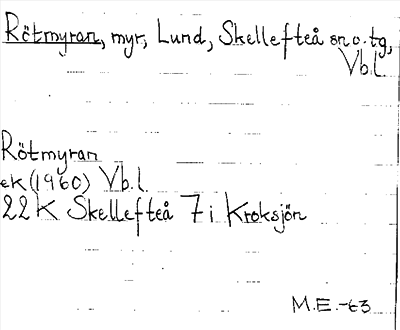 Rötmyran, myr, Lund, Skellefteå sn o. tg,
Vb.l.
Rötmyran
ek (1960) Vb.l.
22K Skellefteå 7i Kroksjön
M.E.-63